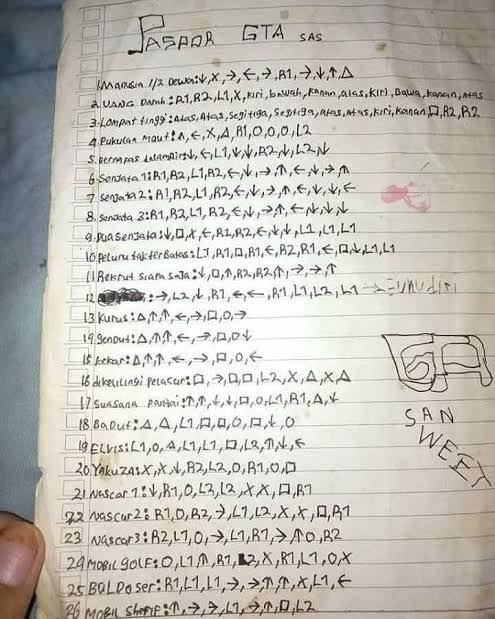 PASPOR GTA SAS
1. Manusia 1/2 Dewa: ↓, X, →, ←, →, R1, →, ↓, ↑, △
2. UANG Darah: R1, R2, L1, X, kiri, bawah, kanan, atas, kiri, Bawa, kanan, atas
3. Lompat tinggi: Atas, Atas, Segitiga, Segitiga, atas, atas, kiri, kanan, □, R2, R2
4. Pukulan maut: △, ←, X, △, R1, O, O, O, L2
5. ↓, ←, L1, ↓, ↓, R2, ↓, L2, ↓
6 Senjata 1: R1, R2, L1, R2, ←, ↓, →, ↑, ←, ↓, →, ↑
7 Senjata 2: R1, R2, L1, R2, ←, ↓, →, ↑, ←, ↓, ↓, ←
8. Senjata 3: R1, R2, L1, R2, ←, ↓, →, ↑, ←, ↓, ↓, ↓
9. Pua senjata: ↓, □, X, ←, R1, R2, ←, ↓, ↓, L1, L1, L1
10 Peluru tak terbatas: L1, R1, □, R1, ←, R2, R1, ←, □, ↓, L1, L1
11 Rekrut siapa saja: ↓, □, ↑, R2, R2, ↑, →, →, ↑
12 : →, L2, ↓, R1, ←, ←, R1, L1, L2, L1 →
13 Kurus: △, ↑, ↑, ←, →, □, O, →
14 gendut: △, ↑, ↑, ←, →, □, O, ↓
15 kekar: △, ↑, ↑, ←, →, □, O, ←
16 dikelilingi pelacur: □, →, □, □, L2, X, △, X, △
17 Suasana pantai: ↑, ↑, ↓, ↓, □, O, L1, R1, △, ↓
18 Badut: △, △, L1, □, □, O, □, ↓, O
19 ELVIS: L1, O, △, L1, L1, □, L2, ↑, ↓, ←
20 YakuZA: X, X, ↓, R2, L2, O, R1, O, □
21 Nascar 1: ↓, R1, O, L2, L2, X, X, □, R1
22 Nascar 2: R1, O, R2, →, L1, L2, X, X, □, R1
23 Nascar 3: R2, L1, O, →, L1, R1, →, ↑, O, R2
24 MOBIL GOLF: O, L1, ↑, R1, L2, X, R1, L1, O, X
25 BOLDoser: R1, L1, L1, →, →, ↑, ↑, X, L1, ←
26 MOBIL Sherif: ↑, →, →, L1, →, ↑, □, L2
SAN
SWEET